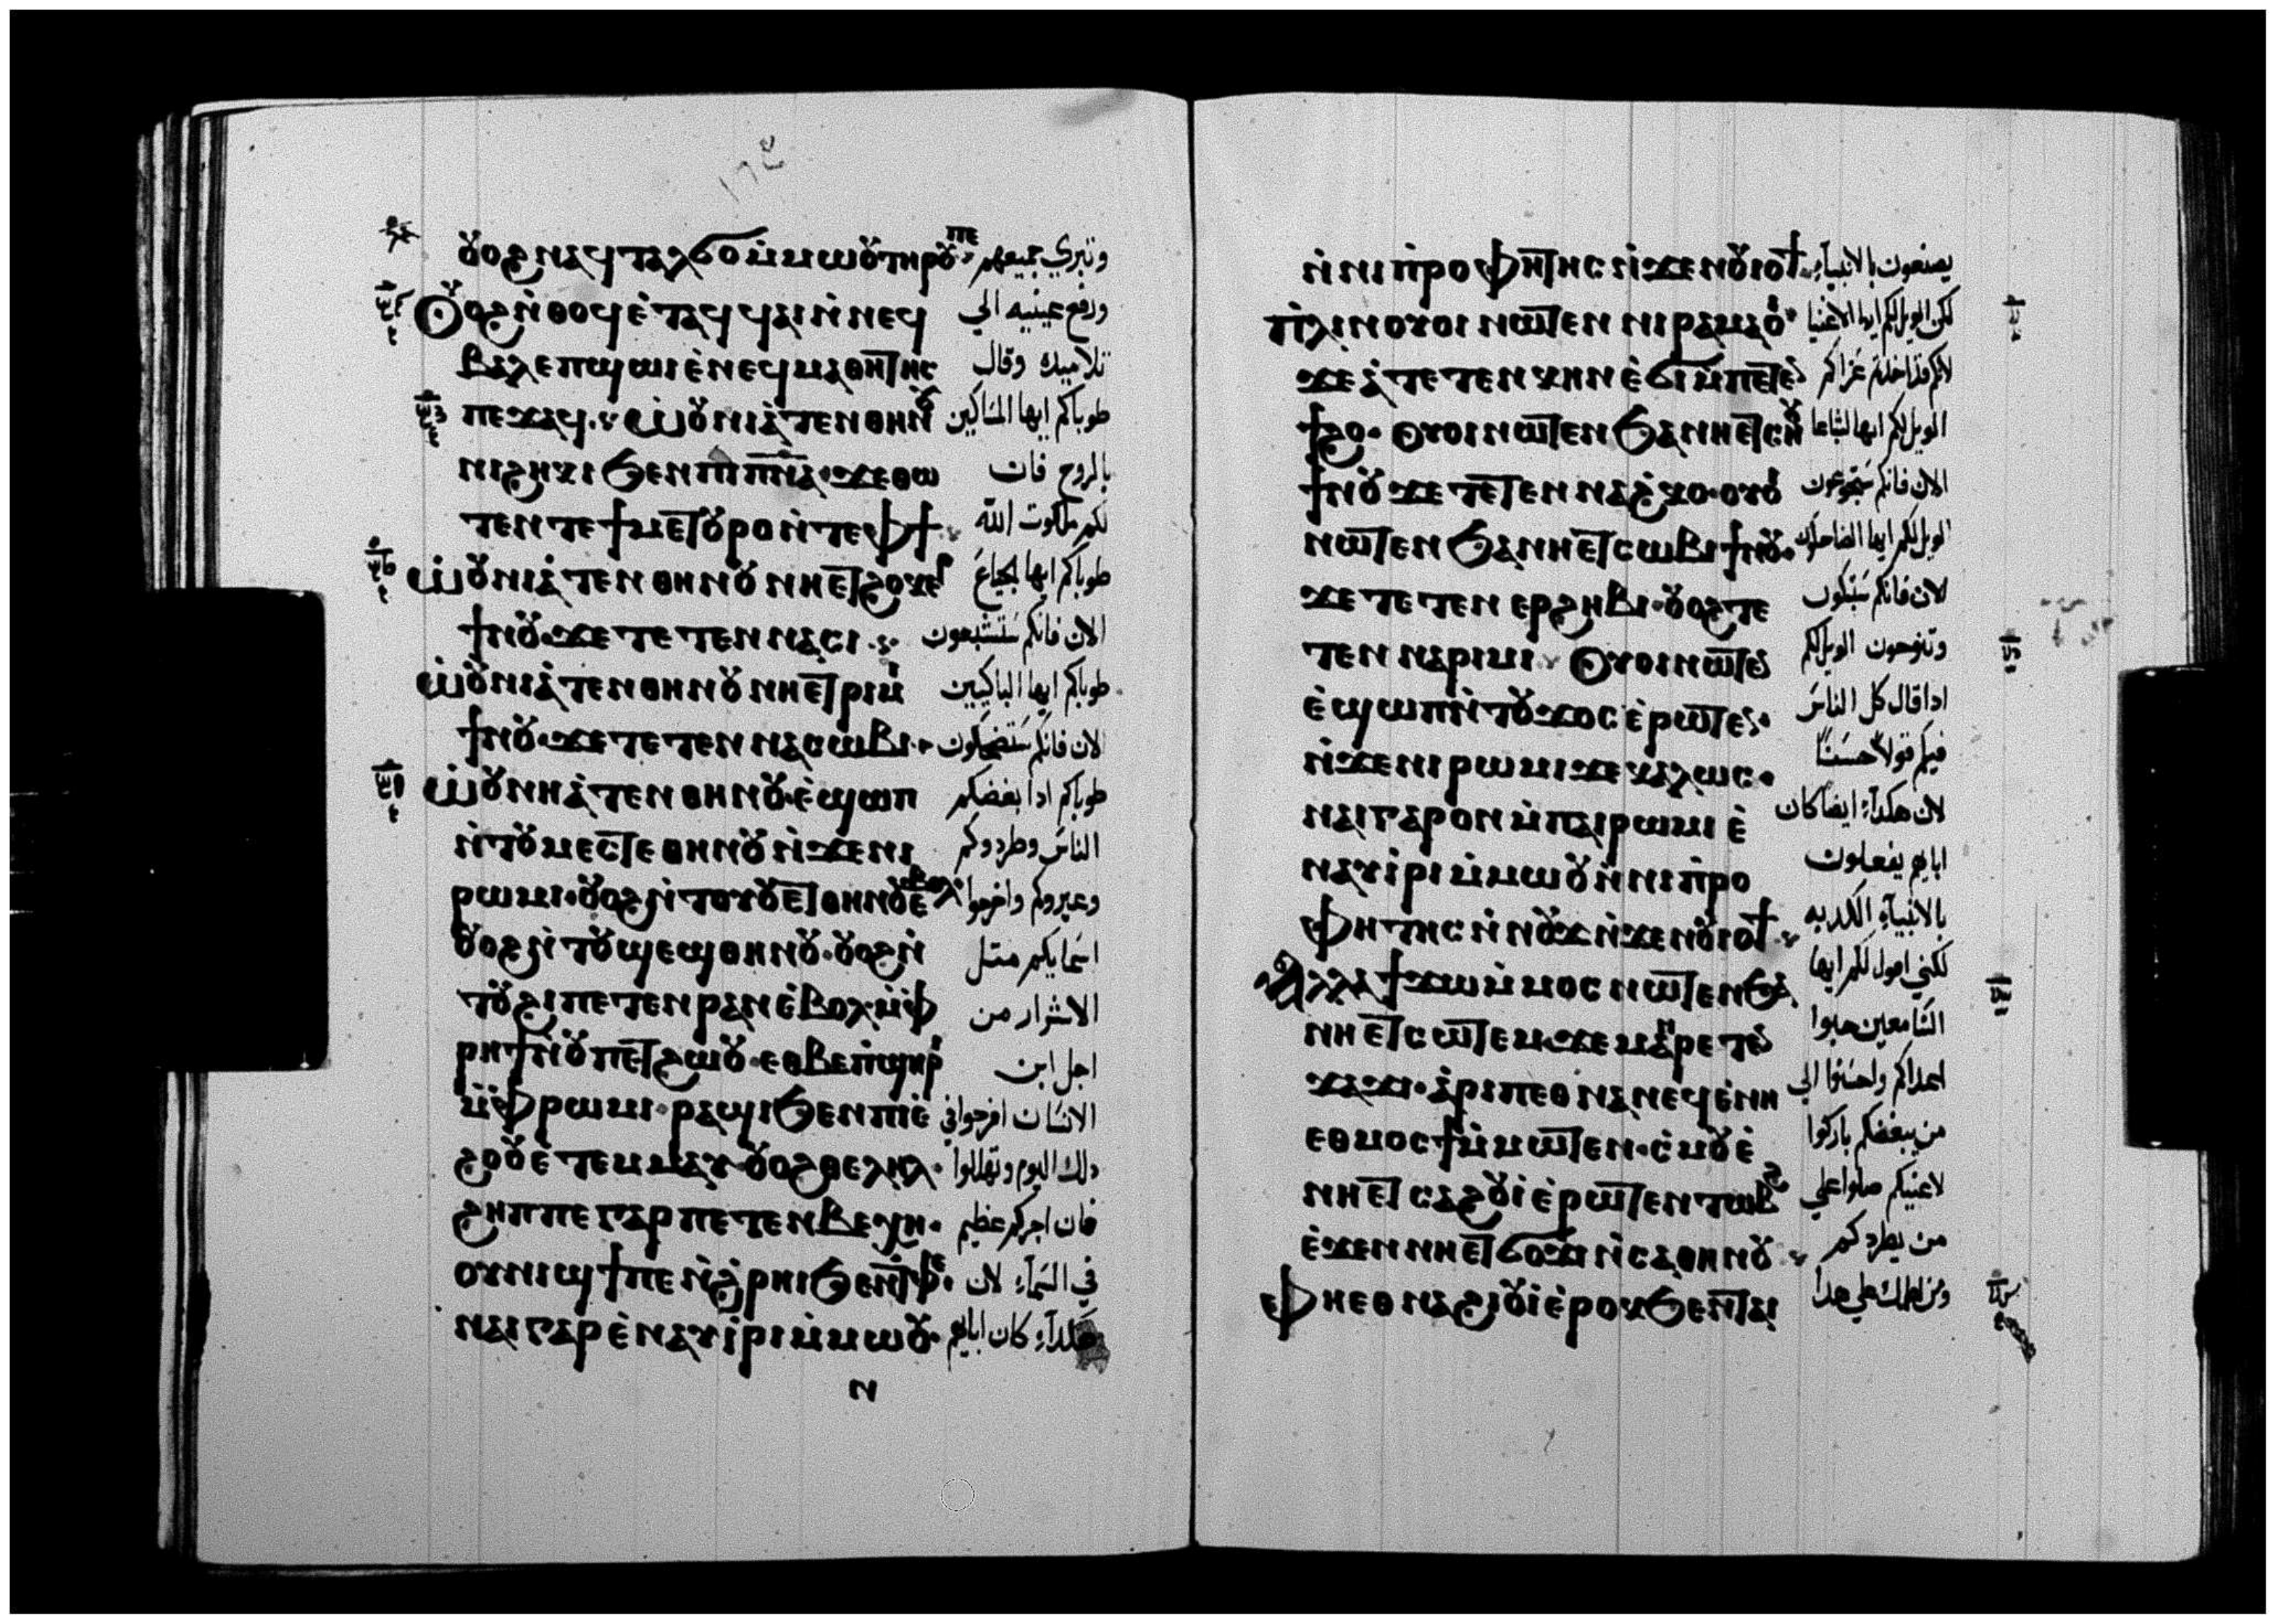 ⲟⲩⲟϩ ⲛⲁϥⲧⲁⲗϭⲟ ⲙ̇ⲙⲱⲟⲩ ⲧⲏⲣⲟⲩ ⲡⲉ وتبري جميعهم
ⲟⲩⲟϩ ⲛ̇ⲑⲟϥ ⲉ̇ⲧⲁϥϥⲁⲓ ⲛ̇ⲛⲉϥ ورفع عينيه الي
ⲃⲁⲗ ⲉⲡϣⲱⲓ ⲉ̇ⲛⲉϥⲙⲁⲑⲏⲧⲏⲥ تلاميده وقال
ⲡⲉϫⲁϥ ⲱ̇ⲟⲩⲛⲓⲁ̇ⲧⲉⲛⲑⲏⲛⲟⲩ طوباكم ايها المساكين
ⲛⲓϩⲏⲕⲓ ϧⲉⲛ ⲡⲓⲡⲛ̅ⲁ̅ ϫⲉ ⲑⲱ بالروح فان
ⲧⲉⲛ ⲧⲉ ϯⲙⲉⲧⲟⲩⲣⲟ ⲛ̇ⲧⲉ ⲫϯ لكم ملكوت الله
ⲱ̇ⲟⲩⲛⲓⲁ̇ⲧⲉⲛⲑⲏⲛⲟⲩ ⲛⲏⲉⲧϩⲟⲕⲉⲣ طوباكم ايها الجياع
ϯⲛⲟⲩ ϫⲉ ⲧⲉⲧⲉⲛⲛⲁⲥⲓ الان فانكم ستشبعون
ⲱ̇ⲟⲩⲛⲓⲁ̇ⲧⲉⲛⲑⲏⲛⲟⲩ ⲛⲏⲉⲧⲣⲓⲙⲓ طوباكم ايها الباكيين
ϯⲛⲟⲩ ϫⲉ ⲧⲉⲧⲉⲛⲛⲁⲥⲱⲃⲓ الان فانكم ستضحكون
ⲱ̇ⲟⲩⲛⲏⲁ̇ⲧⲉⲛⲑⲏⲛⲟⲩ ⲉ̇ϣⲱⲡ طوباكم ادا بغضكم
ⲛ̇ⲧⲟⲩⲙⲉⲥⲧⲉ ⲑⲏⲛⲟⲩ ⲛ̇ϫⲉ ⲛⲓ الناس وطردوكم
ⲣⲱⲙⲓ ⲟⲩⲟϩ ⲛ̇ⲧⲟⲩⲟⲩⲉⲧ ⲑⲏⲛⲟⲩ ⲉⲃⲟⲗ وعيروكم واخرجوا
ⲟⲩⲟϩ ⲛ̇ⲧⲟⲩϣⲉϣ ⲑⲏⲛⲟⲩ ⲟⲩⲟϩ ⲛ̇ اسمايكم متل
ⲧⲟⲩϩⲓ ⲡⲉⲧⲉⲛⲣⲁⲛ ⲉ̇ⲃⲟⲗ ⲙ̇ⲫ الاشرار من
ⲣⲏϯ ⲛ̇ⲟⲩⲡⲉⲧϩⲱⲟⲩ ⲉⲑⲃⲉ ⲡ̇ϣⲏⲣⲓ اجل ابن
ⲙ̇ⲫⲣⲱⲙⲓ ⲣⲁϣⲓ ϧⲉⲛ ⲡⲓⲉ̇ الانسان افرحوا في
ϩⲟⲟⲩ ⲉ̇ⲧⲉⲙⲙⲁⲩ ⲟⲩⲟϩ ⲑⲉⲗⲏⲗ دلك اليوم وتهللوا
ϩⲏⲡⲡⲉ ⲅⲁⲣ ⲡⲉⲧⲉⲛⲃⲉⲭⲏ فان اجركم عظيم
ⲟⲩⲛⲓϣϯ ⲡⲉ ⲛ̇ϩ̇ⲣⲏⲓ ϧⲉⲛ ⲧⲫⲉ في السمآء لان
ⲛⲁⲓ ⲅⲁⲣ ⲉ̇ⲛⲁⲩⲓ̇ⲣⲓ ⲙ̇ⲙⲱⲟⲩ هكدآء كان ابايهم
ⲛ
ⲛ̇ⲛⲓⲡ̇ⲣⲟⲫⲏⲧⲏⲥ ⲛ̇ϫⲉ ⲛⲟⲩⲓⲟϯ يصنعون بالانبيآء
ⲡ̇ⲗⲏⲛ ⲟⲩⲟⲓ ⲛⲱⲧⲉⲛ ⲛⲓⲣⲁⲙⲁⲟ̇ لكن الويل لكم ايها الاغنيا
ϫⲉ ⲁ̇ⲧⲉⲧⲉⲛⲕⲏⲛ ⲉ̇ϭⲓ ⲙ̇ⲡⲉⲧⲉⲛ لانكم قد اخدتم عزاكم
ϯϩⲟ ⲟⲩⲟⲓ ⲛⲱⲧⲉⲛ ϧⲁ ⲛⲏⲉⲧⲥⲏⲟⲩ الويل لكم ايها الشباعا
ϯⲛⲟⲩ ϫⲉ ⲧⲉⲧⲉⲛⲛⲁϩ̇ⲕⲟ ⲟⲩⲟⲓ الان فانكم ستجوعون
ⲛⲱⲧⲉⲛ ϧⲁ ⲛⲏⲉⲧⲥⲱⲃⲓ ϯⲛⲟⲩ الويل لكم ايها الضاحكون
ϫⲉ ⲧⲉⲧⲉⲛⲉⲣϩⲏⲃⲓ ⲟⲩⲟϩ ⲧⲉ الان فانكم ستبكون
ⲧⲉⲛⲛⲁⲣⲓⲙⲓ ⲟⲩⲟⲓ ⲛⲱⲧⲉⲛ وتنوحون الويل لكم
ⲉ̇ϣⲱⲡ ⲛ̇ⲧⲟⲩϫⲟⲥ ⲉ̇ⲣⲱⲧⲉⲛ ادا قال كل الناس
ⲛ̇ϫⲉ ⲛⲓⲣⲱⲙⲓ ϫⲉ ⲕⲁⲗⲱⲥ فيكم قولا حسنا
ⲛⲁⲓ ⲅⲁⲣ ⲟⲛ ⲙ̇ⲡⲁⲓⲣⲱⲙⲓ ⲉ̇ لان هكدآء ايضا كان
ⲛⲁⲩⲓ̇ⲣⲓ ⲙ̇ⲙⲱⲟⲩ ⲛ̇ⲛⲓⲡ̇ⲣⲟ ابايهم يفعلون
ⲫⲏⲧⲏⲥ ⲛ̇ⲛⲟⲩϫ ⲛ̇ϫⲉ ⲛⲟⲩⲓⲟϯ بالانبيآء الكدبه
ⲁⲗⲗⲁ ϯϫⲱ ⲙ̇ⲙⲟⲥ ⲛⲱⲧⲉⲛ ϧⲁ لكني اقول لكم ايها
ⲛⲏⲉⲧⲥⲱⲧⲉⲙ ϫⲉ ⲙⲉⲛⲣⲉ ⲛⲉⲧⲉⲛ السامعين حبوا
ϫⲁϫⲓ ⲁ̇ⲣⲓ ⲡⲉⲑⲛⲁⲛⲉϥ ⲉ̇ⲛⲏ اعداكم واحسنوا الي
ⲉⲑⲙⲟⲥϯ ⲙ̇ⲙⲱⲧⲉⲛ ⲥ̇ⲙⲟⲩ ⲉ̇ من يبغضكم باركوا
ⲛⲏⲉⲧⲥⲁϩⲟⲩⲓ̇ ⲉ̇ⲣⲱⲧⲉⲛ ⲧⲱⲃϩ لاعنيكم صلوا علي
ⲉ̇ϫⲉⲛ ⲛⲏⲉⲧϭⲟϫⲓ ⲛ̇ⲥⲁ ⲑⲏⲛⲟⲩ من يطردكم
ⲫⲏⲉⲑⲛⲁϩⲓⲟⲩⲓ̇ ⲉ̇ⲣⲟⲕ ϧⲉⲛ ⲧⲁⲓ ومن لطمك علي هدا